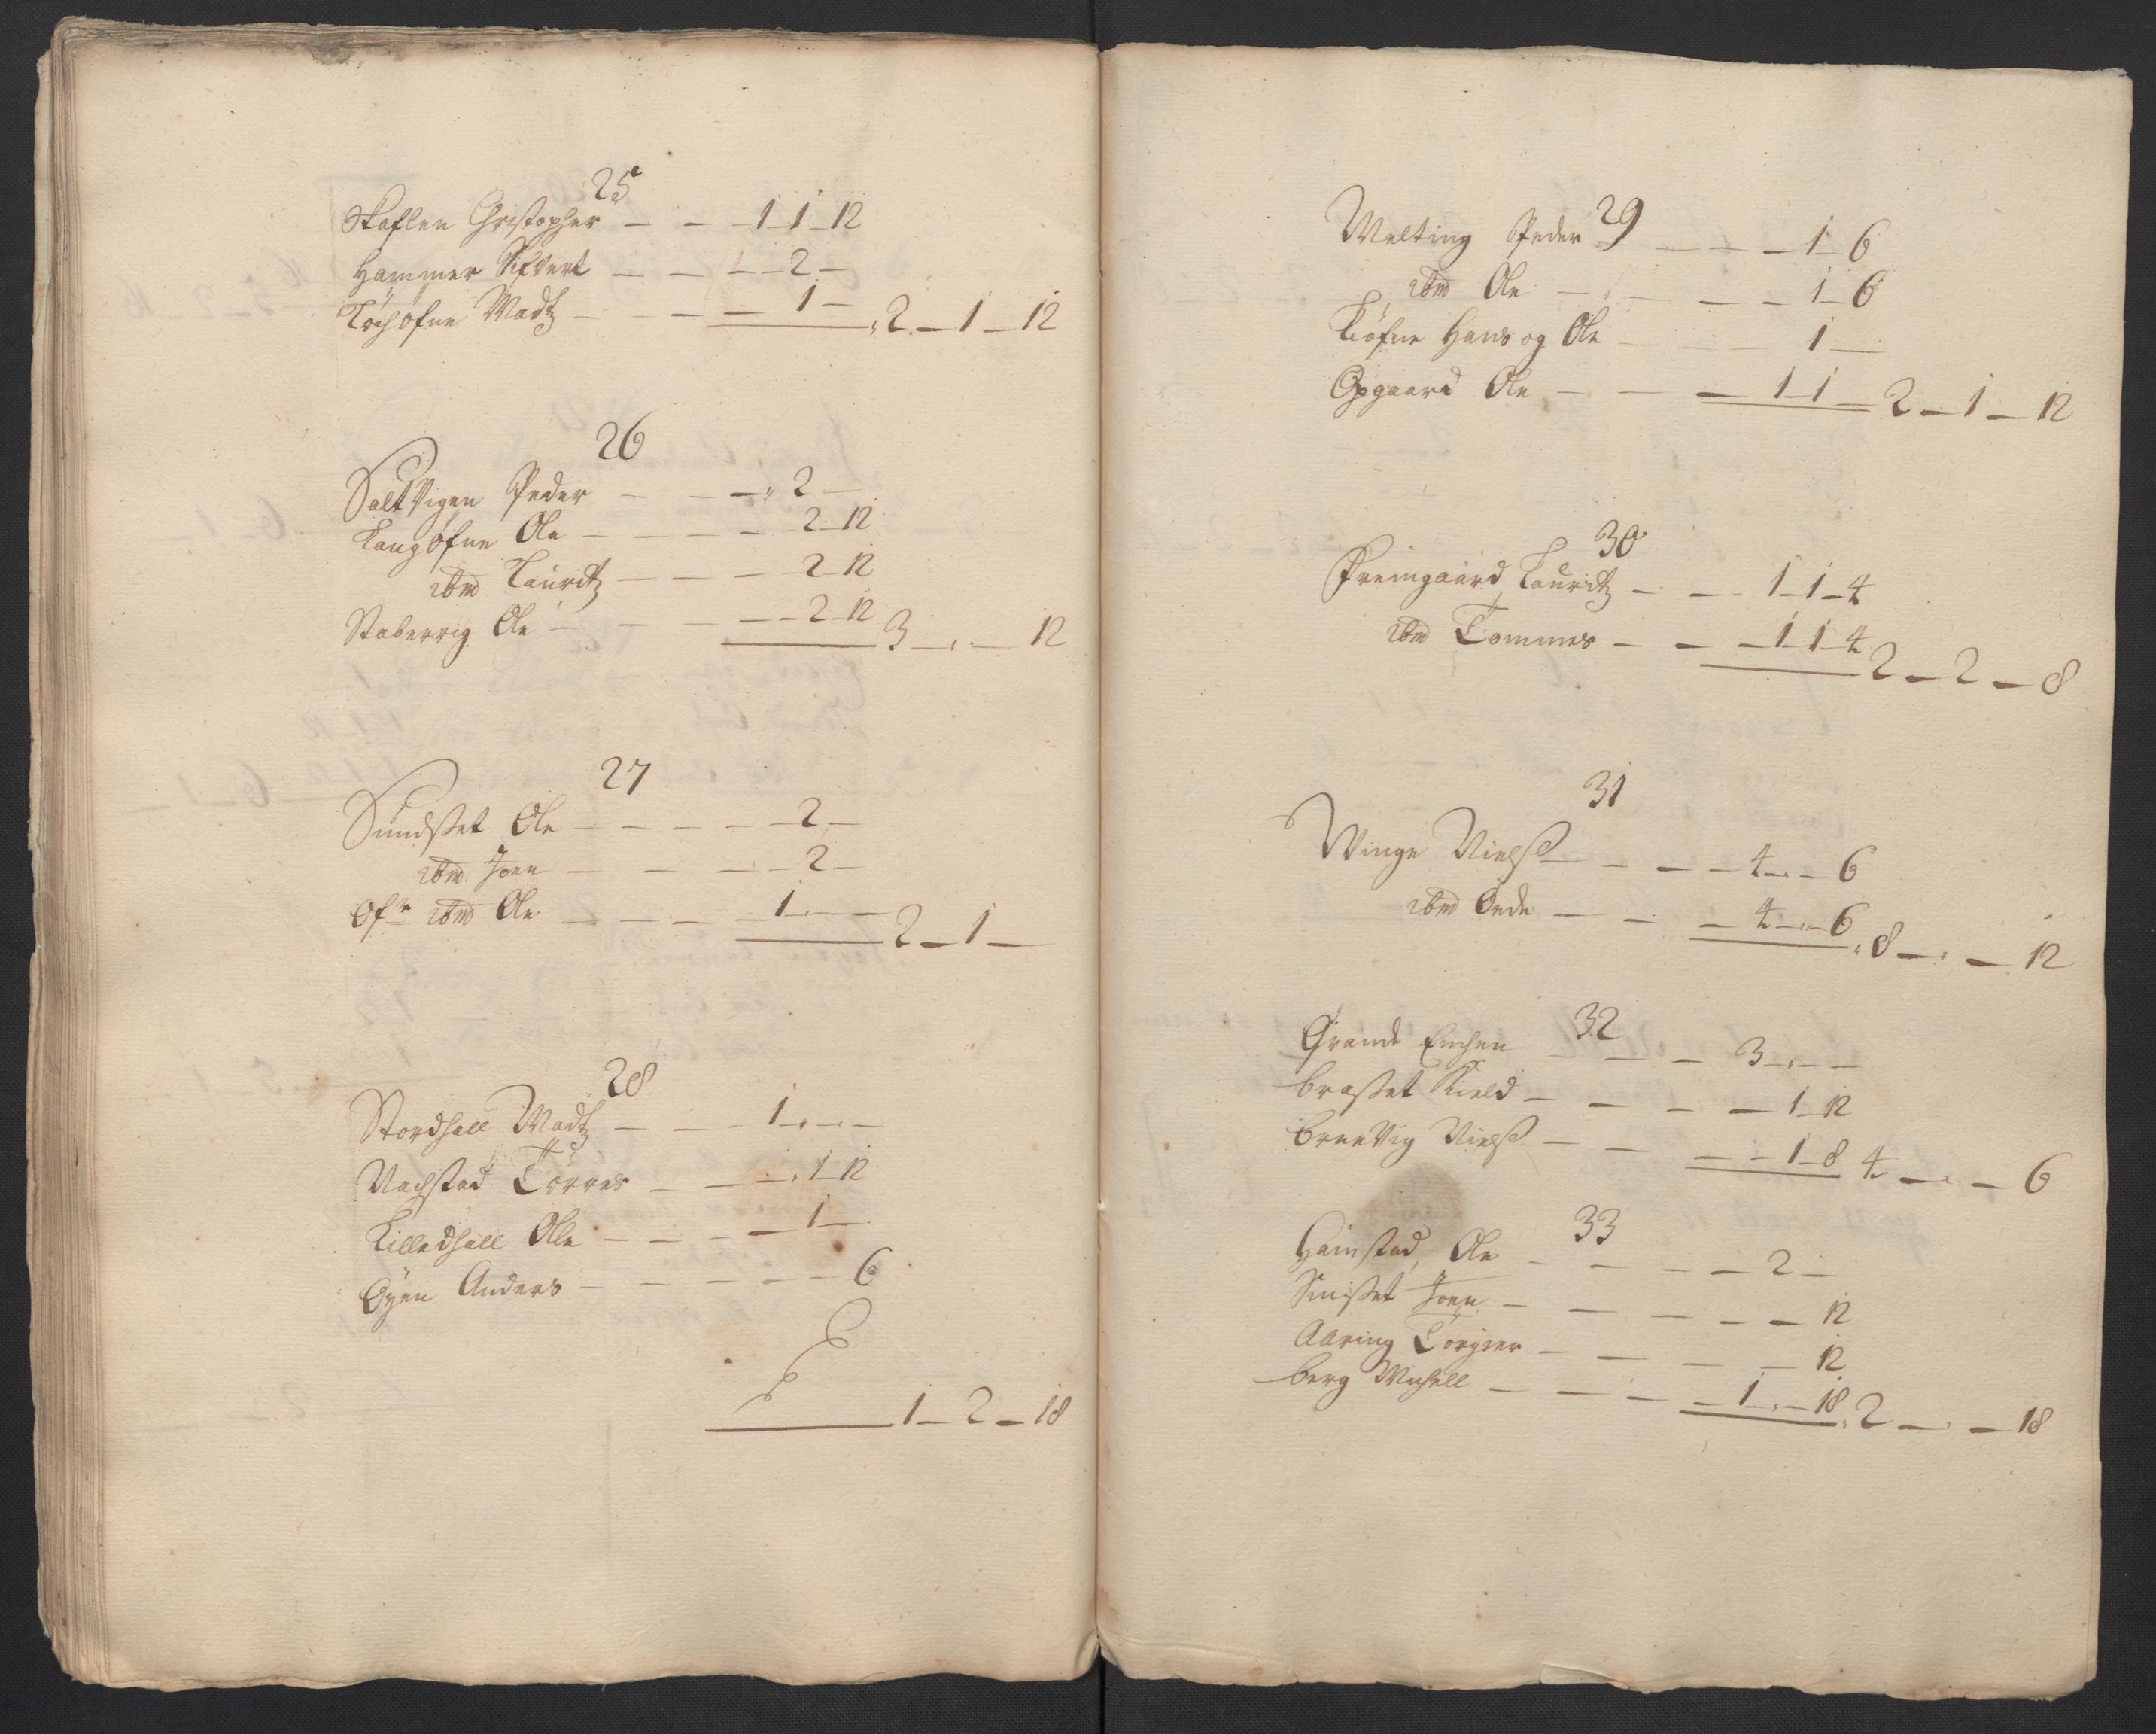 25
Skaflen Christopher — — 1–1–12
Hammer Sifvert — — — 2 —
Löchofne Madtz — — — 1 — 2 — 1 — 12
26
Saltvigen Peder — — — 2 —
Langøfne Ole — — — 2–12
ibm Lauritz — — — 2–12
Staberrig Ole — — — 2–12 3 — „ — 12
27
Sundset Ole — — — — 2 —
ibm Joen — — — — 2 —
Ofr ibm Ole — — — 1 „ — 2 — 1 —
28
Stordhall Madtz — — — 1 „ —
Nachstad Törres — — — 1–12
Lilledhall Olle — — — 1 —
Öyen Anders — — — — — 6
1 — 2 — 18
29
Melting Peder — — — 1–6
ibm Ole — — — — 1–6
Kiöfne Hans og Ole — — 1 —
Opgaard Ole — — — 1–1 — 2 — 1 — 12
30
Fremgaard Lauritz — — 1–1–4
ibm Tommes — — — 1–1–4 2 — 2 — 8
31
Winge Nielß — — — — 4 „ — 6
ibm Ende — — — 4 „ — 6 8 — „ — 12
32
Grande Enchen — — — 3 „ —
Braset Kield — — — — 1–12
Breevig Nielß — — — — 1–8 4 — „ — 6
33
Hamstad Ole — — — — 2 —
Smiset Joen — — — — — 12
Aaring Torgier — — — — 12
Berg Michell — — — — 1 „ — 18 2 — „ — 18